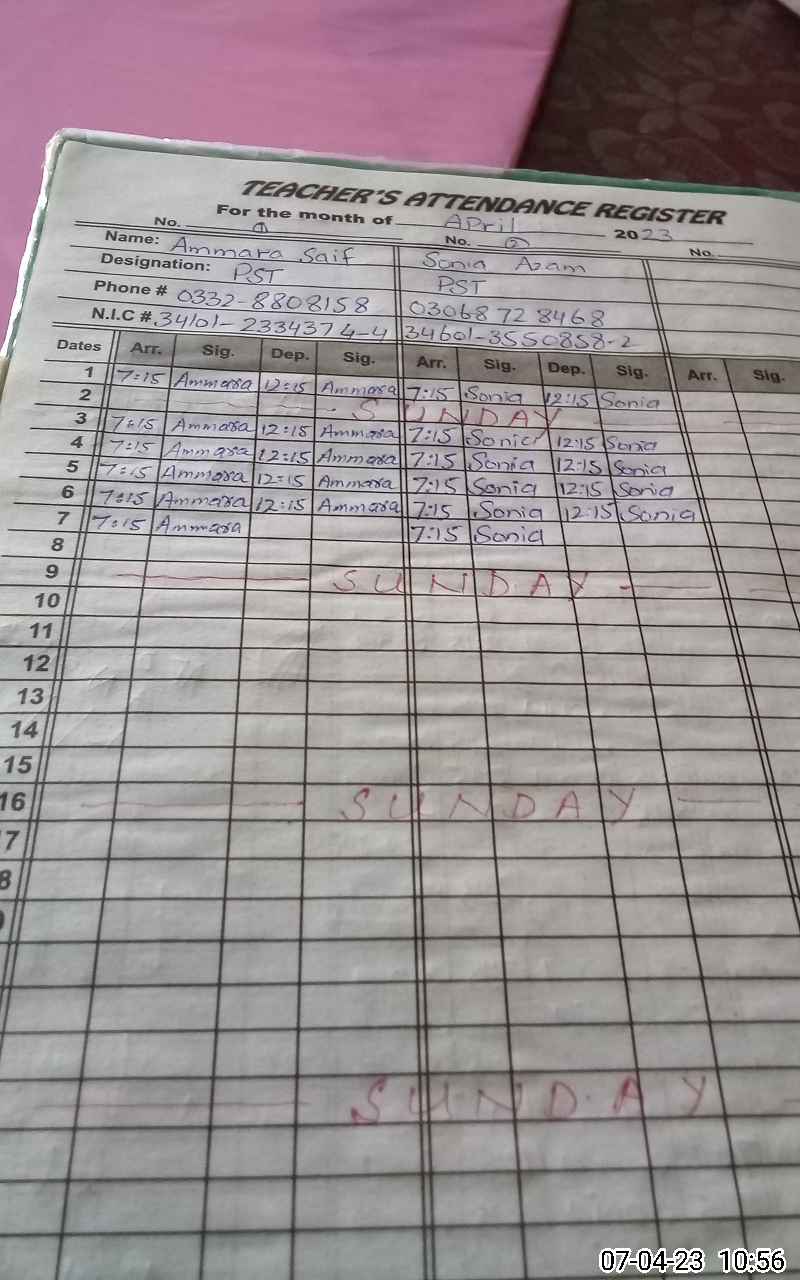 TEACHER'S ATTENDANCE REGISTER
For the month of April 2023
No. ① No. ② No.
Name: Ammara Saif Sonia Azam
Designation: PST PST
Phone # 0332-8808158 03068728468
N.I.C #. 34101-2334374-4 34601-3550858-2
Dates Arr. Sig. Dep. Sig. Arr. Sig. Dep. Sig. Arr. Sig.
1 7:15 Ammara 12:15 Ammara 7:15 Sonia 12:15 Sonia
2 SUNDAY
3 7:15 Ammara 12:15 Ammara 7:15 Sonia 12:15 Sonia
4 7:15 Ammara 12:15 Ammara 7:15 Sonia 12:15 Sonia
5 7:15 Ammara 12:15 Ammara 7:15 Sonia 12:15 Sonia
6 7:15 Ammara 12:15 Ammara 7:15 Sonia 12:15 Sonia
7 7:15 Ammara 7:15 Sonia
8
9 SUNDAY
10
11
12
13
14
15
16 SUNDAY
7
8
SUNDAY
07-04-23 10:56